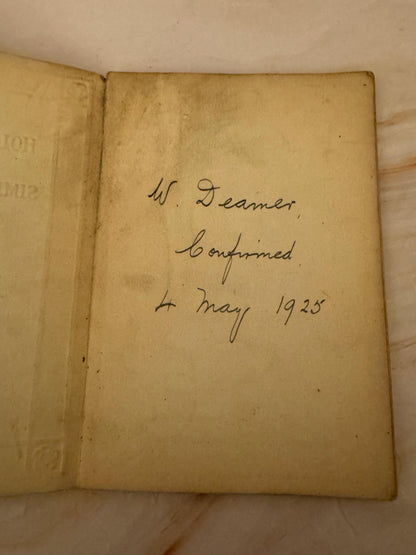 W. Deamer,
Confirmed.
4 May, 1925